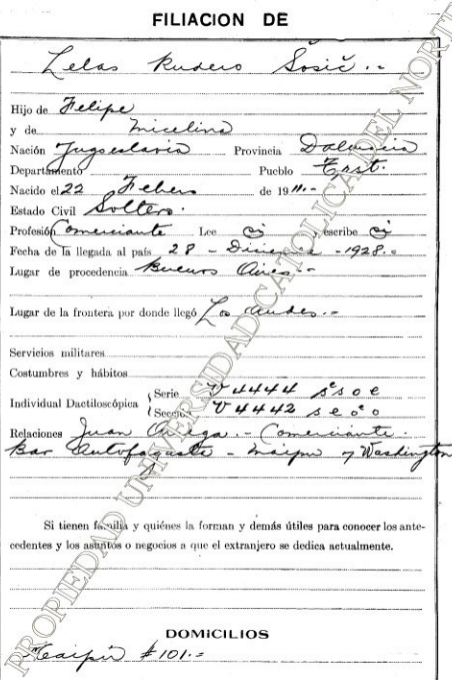 FILIACION DE
Lelas Rudero Sosič.-
Hijo de Felipe
y de Micelina
Nación Jugoeslavia Provincia Dalmacia
Departamento Pueblo Trst.
Nacido el 22 Febero de 1911.-
Estado Civil Soltero.
Profesión Comerciante Lee si, escribe si
Fecha de la llegada al país 28 - - 1928.-
Lugar de procedencia Buenos Aires.-
Lugar de la frontera por donde llegó Los Andes.-
Servicios militares
Costumbres y hábitos
Individual Dactiloscópica Serie V 4444
Sección V 4442
Relaciones Juan - Comerciante.
Bar Autofagasta - Maipu y Washington
Si tienen familia y quiénes la forman y demás útiles para conocer los ante-
cedentes y los asuntos o negocios a que el extranjero se dedica actualmente.
DOMICILIOS
Maipú # 101.=
PROPIEDAD UNIVERSIDAD CATOLICA DEL NORTE